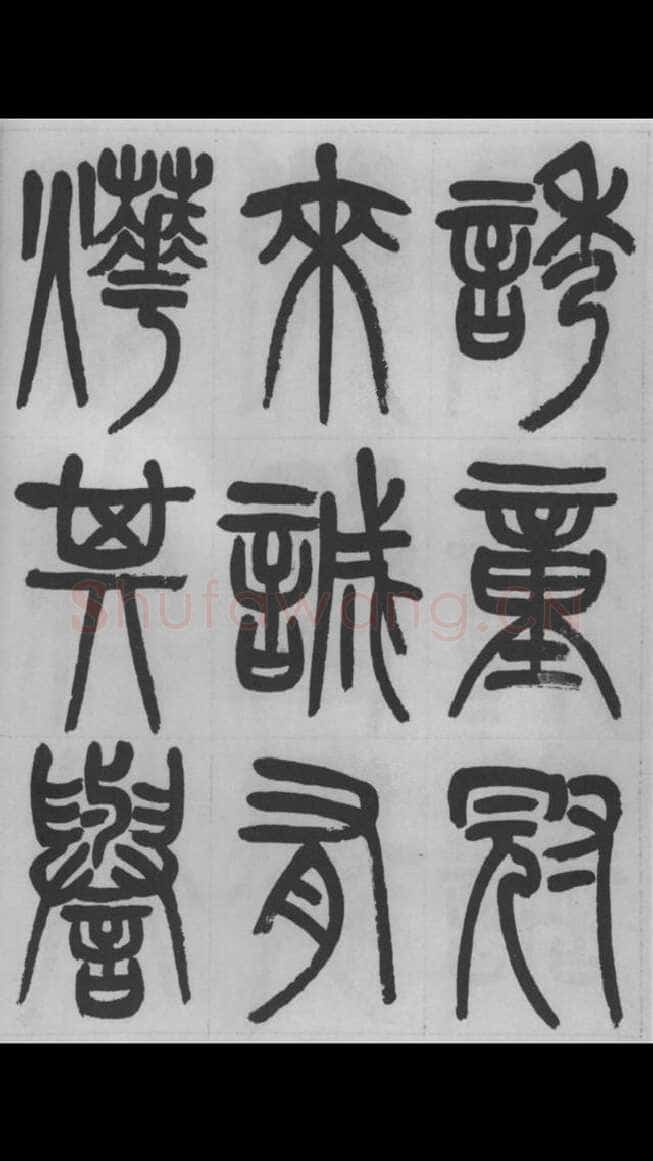 誘童冠
來誠有
燁其譽
Shufawang.CN